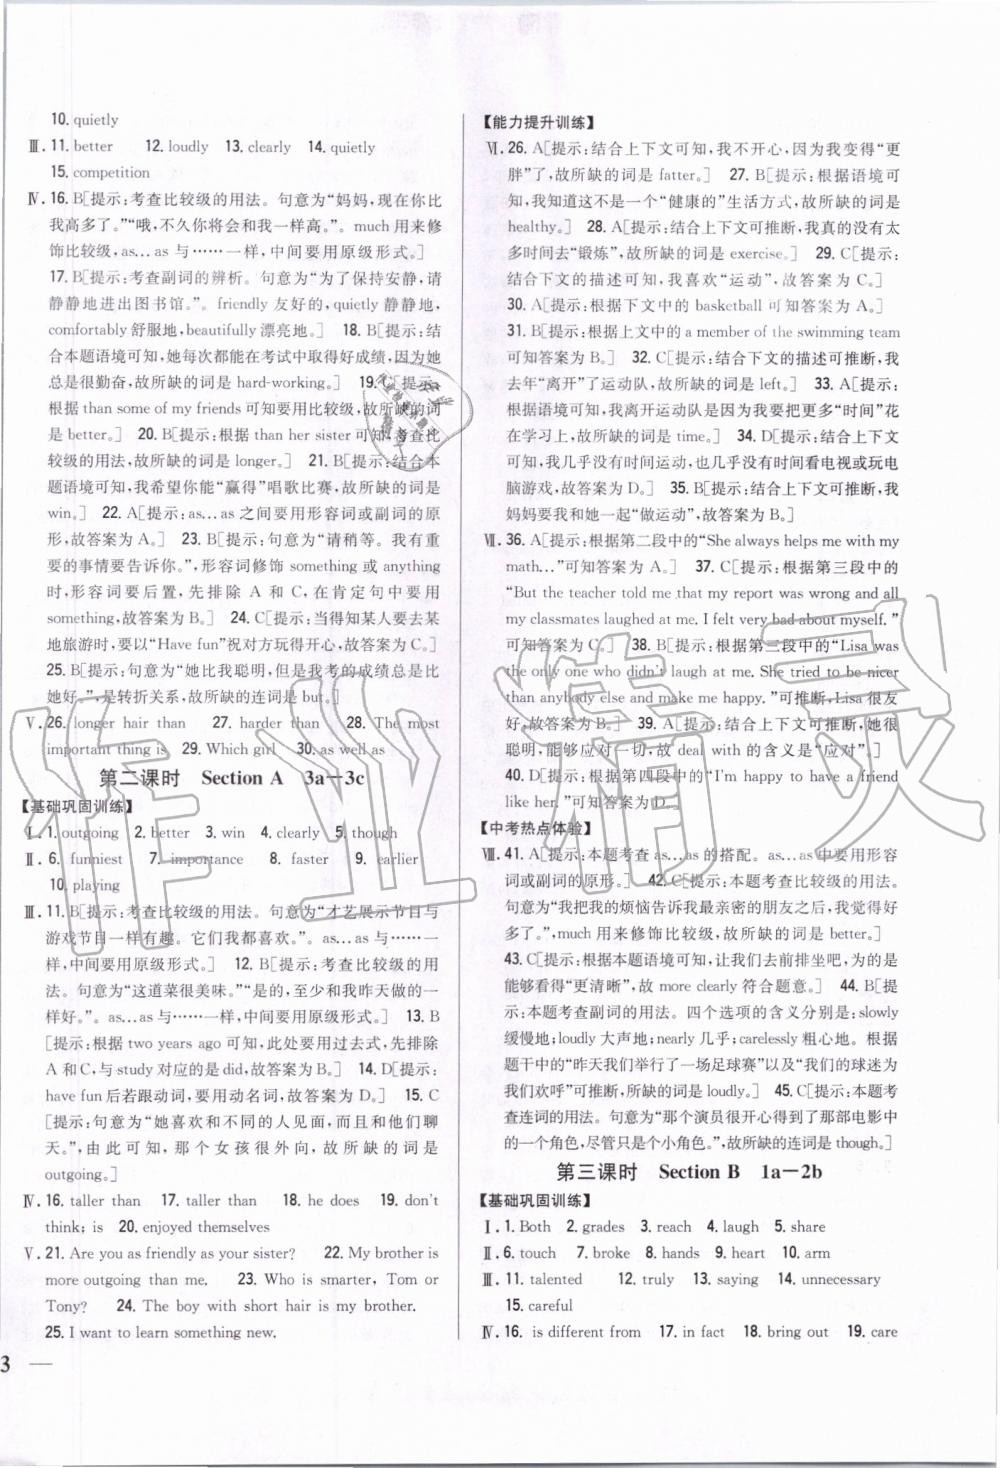 10. quietly
Ⅲ. 11. better 12. loudly 13. clearly 14. quietly
15. competition
Ⅳ. 16. B[提示:考查比较级的用法。句意为“妈妈,现在你比
我高多了。”“哦,不久你将会和我一样高。”。much用来修
饰比较级,as…as与……一样,中间要用原级形式。]
17. B[提示:考查副词的辨析。句意为“为了保持安静,请
静静地进出图书馆。”。friendly友好的,quietly静静地,
comfortably舒服地,beautifully漂亮地。] 18. B[提示:结
合本题语境可知,她每次都能在考试中取得好成绩,因为她
总是很勤奋,故所缺的词是hard-working。] 19. C[提示:
根据than some of my friends可知要用比较级,故所缺的词
是better。] 20. B[提示:根据than her sister可知,考查比
较级的用法,故所缺的词是longer。] 21. B[提示:结合本
题语境可知,我希望你能“赢得”唱歌比赛,故所缺的词是
win。] 22. A[提示:as…as之间要用形容词或副词的原
形,故答案为A。] 23. B[提示:句意为“请稍等。我有重
要的事情要告诉你。”,形容词修饰something或anything
时,形容词要后置,先排除A和C,在肯定句中要用
something,故答案为B。] 24. C[提示:当得知某人要去某
地旅游时,要以“Have fun”祝对方玩得开心,故答案为C。]
25. B[提示:句意为“她比我聪明,但是我考的成绩总是比
她好。”,是转折关系,故所缺的连词是but。]
Ⅴ. 26. longer hair than 27. harder than 28. The most
important thing is 29. Which girl 30. as well as
第二课时 Section A 3a—3c
【基础巩固训练】
Ⅰ. 1. outgoing 2. better 3. win 4. clearly 5. though
Ⅱ. 6. funniest 7. importance 8. faster 9. earlier
10. playing
Ⅲ. 11. B[提示:考查比较级的用法。句意为“才艺展示节目与
游戏节目一样有趣。它们我都喜欢。”。as…as与……一
样,中间要用原级形式。] 12. B[提示:考查比较级的用
法。句意为“这道菜很美味。”“是的,至少和我昨天做的一
样好。”。as…as与……一样,中间要用原级形式。] 13. B
[提示:根据two years ago可知,此处要用过去式,先排除
A和C,与study对应的是did,故答案为B。] 14. D[提示:
have fun后若跟动词,要用动名词,故答案为D。] 15. C
[提示:句意为“她喜欢和不同的人见面,而且喜欢和他们聊
天。”,由此可知,那个女孩很外向,故所缺的词是
outgoing。]
Ⅳ. 16. taller than 17. taller than 18. he does 19. don't
think; is 20. enjoyed themselves
Ⅴ. 21. Are you as friendly as your sister? 22. My brother is
more outgoing than me. 23. Who is smarter, Tom or
Tony? 24. The boy with short hair is my brother.
25. I want to learn something new.
3
【能力提升训练】
Ⅵ. 26. A[提示:结合上下文可知,我不开心,因为我变得“更
胖”了,故所缺的词是fatter。] 27. B[提示:根据语境可
知,我知道这不是一个“健康的”生活方式,故所缺的词是
healthy。] 28. A[提示:结合上下文可知,我真的没有太
多时间去“锻炼”,故所缺的词是exercise。] 29. C[提示:
结合下文的描述可知,我喜欢“运动”,故答案为C。]
30. A[提示:根据下文中的basketball可知答案为A。]
31. B[提示:根据上文中的a member of the swimming team
可知答案为B。] 32. C[提示:结合下文的描述可推断,我
去年“离开”了运动队,故所缺的词是left。] 33. A[提示:
根据语境可知,我离开运动队是为了把更多“时间”花
在学习上,故所缺的词是time。] 34. D[提示:结合上下文
可知,我几乎没有时间运动,也几乎没有时间看电视或玩电
脑游戏,故答案为D。] 35. B[提示:结合上下文可推断,我
妈妈要我和她一起“做运动”,故答案为B。]
Ⅶ. 36. A[提示:根据第二段中的“She always helps me with my
math…”可知答案为A。] 37. C[提示:根据第三段中的
“But the teacher told me that my report was wrong and all
my classmates laughed at me. I felt very bad about myself.”
可知答案为C。] 38. B[提示:根据第三段中的“Lisa was
the only one who didn't laugh at me. She tried to be nicer
than anybody else and make me happy.”可推断,Lisa很友
好,故答案为B。] 39. A[提示:结合上下文可推断,她很
聪明,能够应对一切,故deal with的含义是“应对”。]
40. D[提示:根据第四段中的“I'm happy to have a friend
like her.”可知答案为D。]
【中考热点体验】
Ⅷ. 41. A[提示:本题考查as…as的搭配。as…as中要用形容
词或副词的原形。] 42. C[提示:本题考查比较级的用法。
句意为“我把我的烦恼告诉我最亲密的朋友之后,我觉得好
多了。”,much用来修饰比较级,故所缺的词是better。]
43. C[提示:根据本题语境可知,让我们去前排坐吧,为的是
能够看得“更清晰”,故more clearly符合题意。] 44. B[提
示:本题考查副词的用法。四个选项的含义分别是:slowly
缓慢地;loudly大声地;nearly几乎;carelessly粗心地。根据
题干中的“昨天我们举行了一场足球赛”以及“我们的球迷为
我们欢呼”可推断,所缺的词是loudly。] 45. C[提示:本题考
查连词的用法。句意为“那个演员很开心得到了那部电影中
的一个角色,尽管只是个小角色。”,故所缺的连词是though。]
第三课时 Section B 1a—2b
【基础巩固训练】
Ⅰ. 1. Both 2. grades 3. reach 4. laugh 5. share
Ⅱ. 6. touch 7. broke 8. hands 9. heart 10. arm
Ⅲ. 11. talented 12. truly 13. saying 14. unnecessary
15. careful
Ⅳ. 16. is different from 17. in fact 18. bring out 19. care
作业精灵